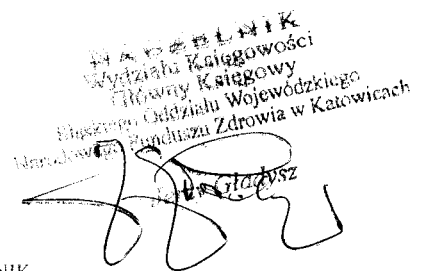 NACZELNIK
Wydziału Księgowości
Główny Księgowy
Śląskiego Oddziału Wojewódzkiego
Narodowego Funduszu Zdrowia w Katowicach
Gładysz
NIK